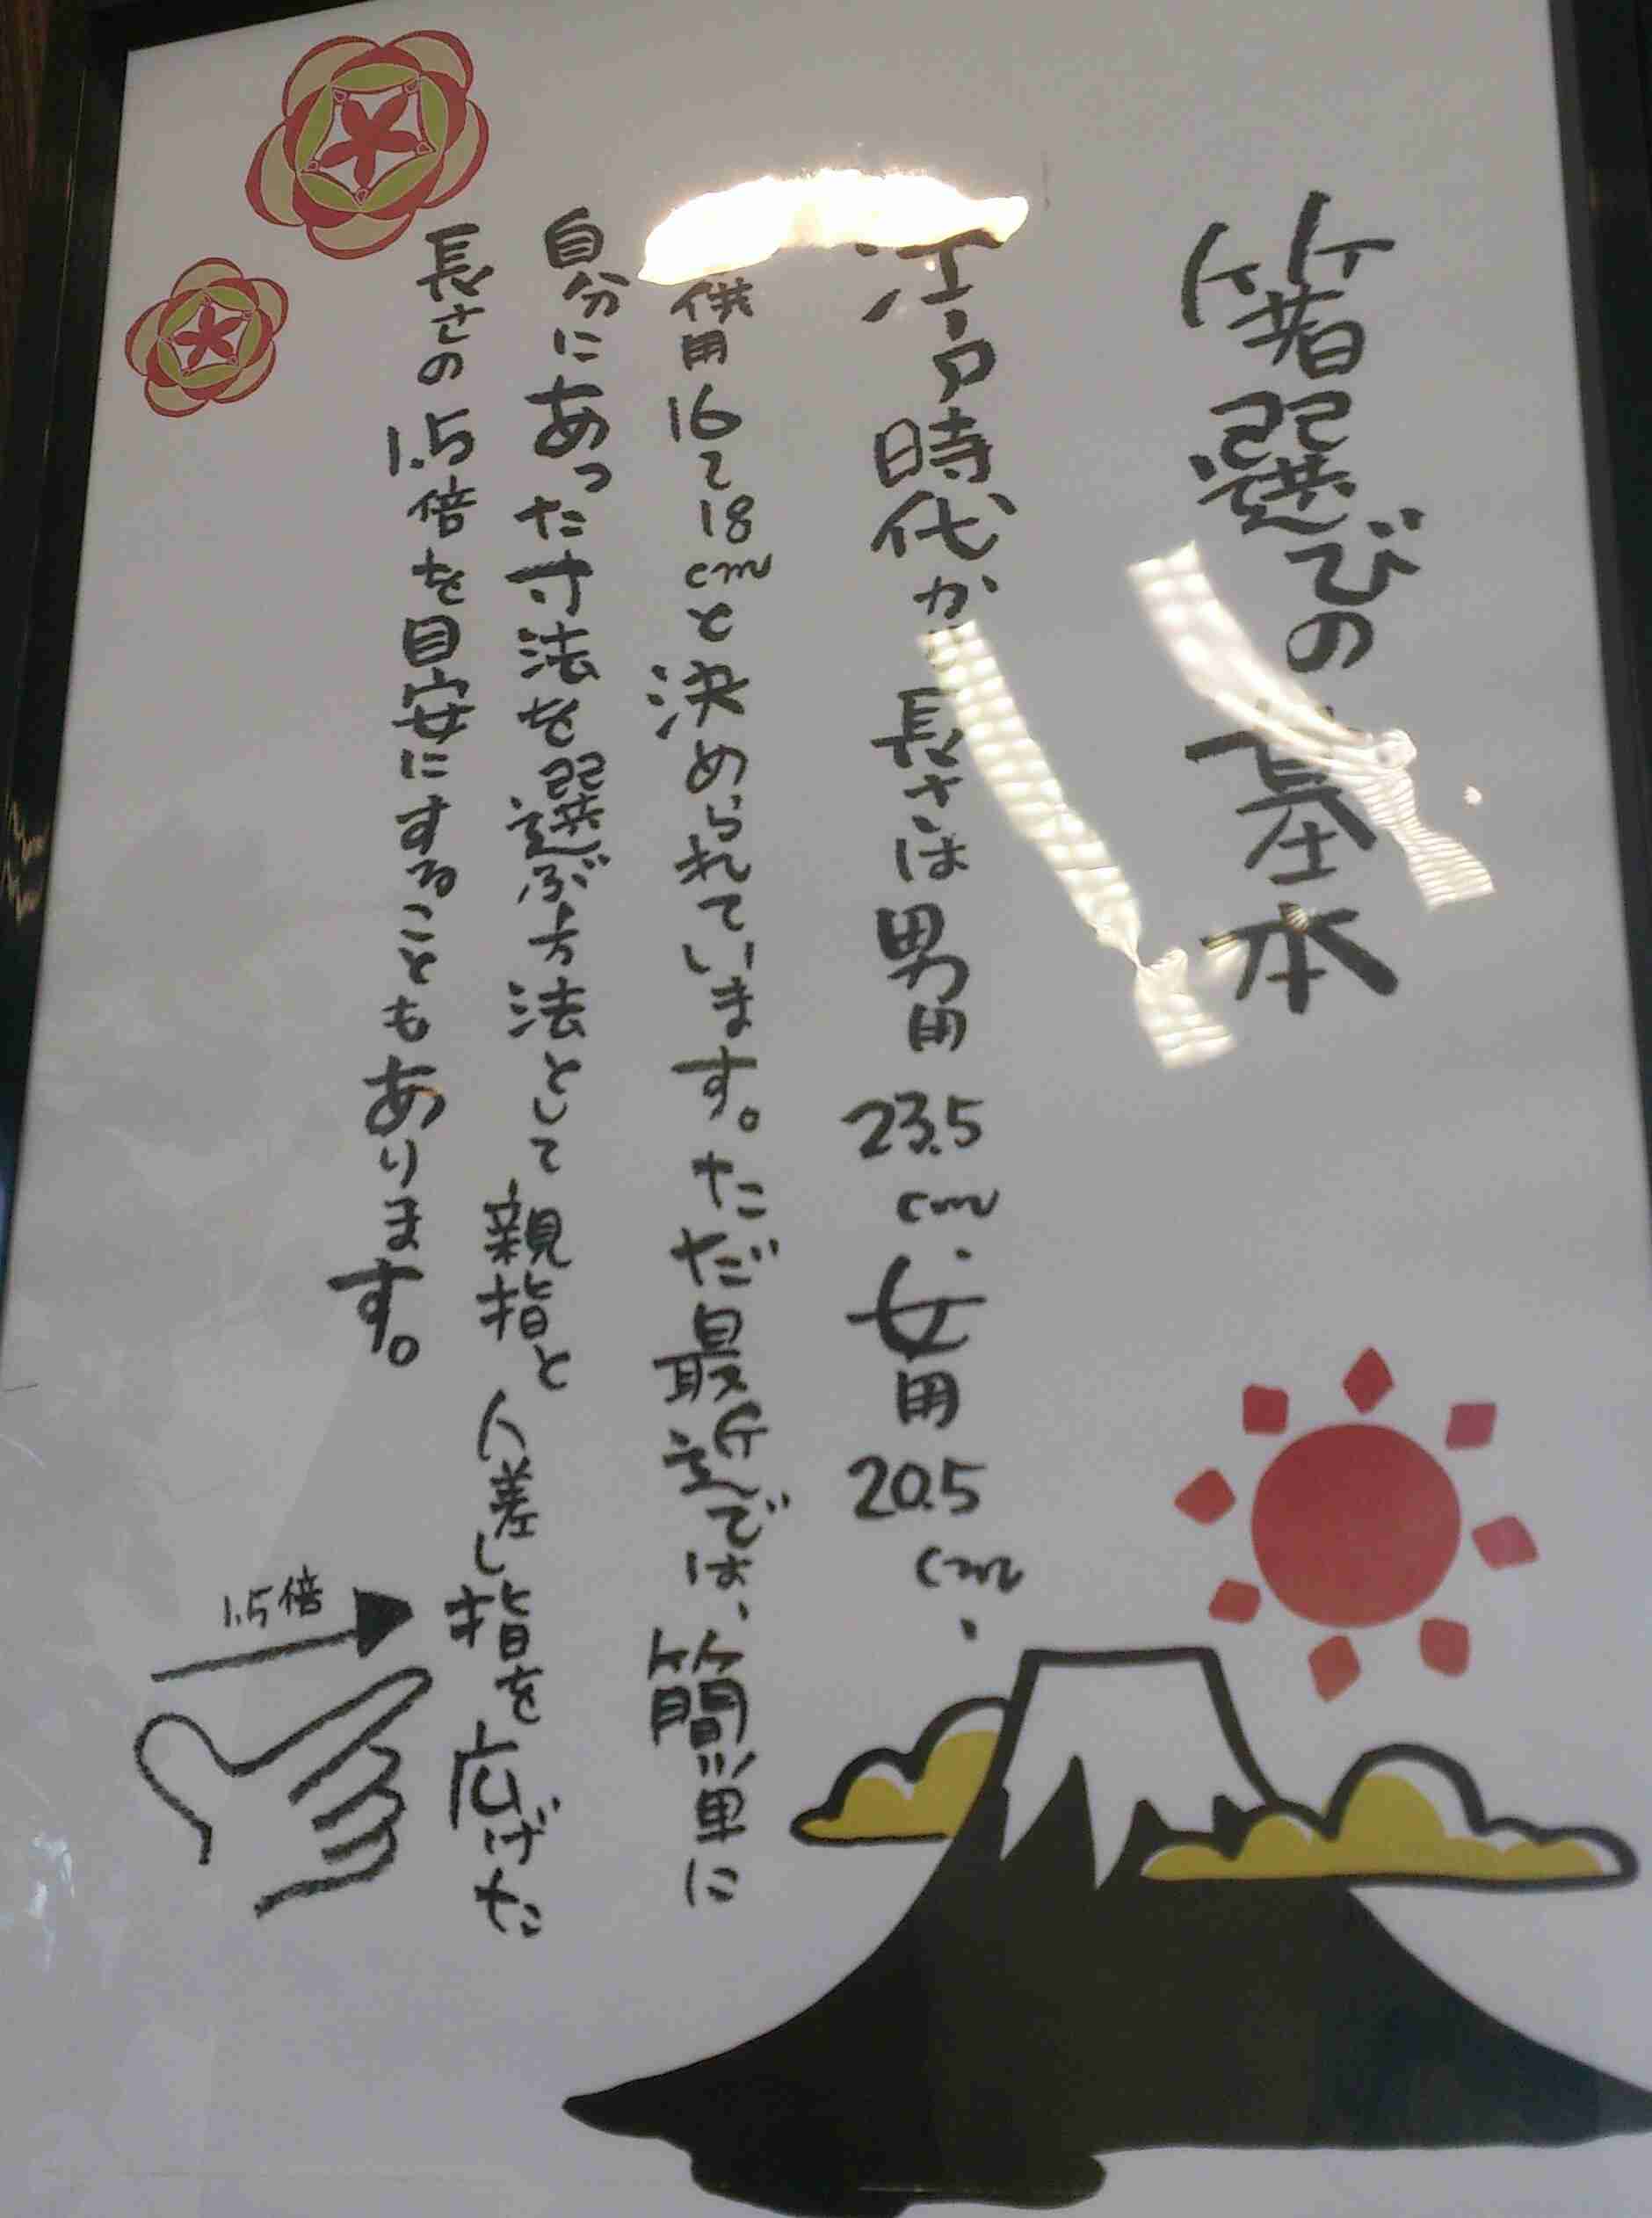 箸選びの基本
江戸時代か 長さは男用23.5cm、女用20.5cm、
供用16〜18cmと決められています。ただ最近では、簡単に
自分にあった寸法を選ぶ方法として親指と人差し指を広げた
長さの1.5倍を目安にすることもあります。
1.5倍